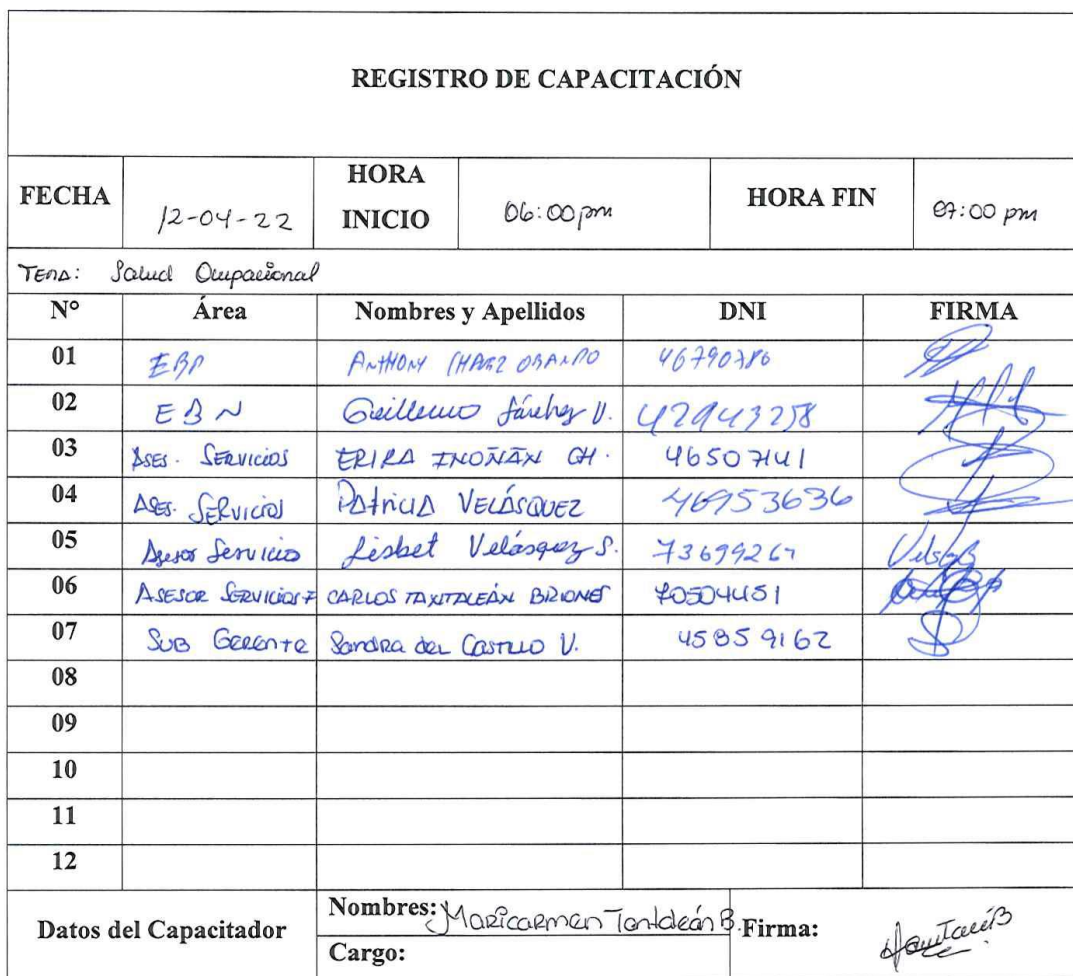 REGISTRO DE CAPACITACIÓN
FECHA 12-04-22 HORA INICIO 06:00 pm HORA FIN 07:00 pm
TEMA: Salud Ocupacional
N° Área Nombres y Apellidos DNI FIRMA
01 ANTHONY 46790786
02 EBN Guillermo Sánchez V. 42943258
03 ASES. SERVICIOS ERIKA INOÑÁN CH. 46507141
04 ASES. SERVICIOS PATRICIA VELÁSQUEZ 46953636
05 Asesor Servicio Lisbet Velásquez S.
06 ASESOR SERVICIOS F CARLOS TANTALEÁN BRIONES 70504451
07 SUB GERENTE Sandra del CASTILLO V. 45859162
08
09
10
11
12
Datos del Capacitador Nombres: Maricarmen Tantaleán B. Firma:
Cargo: